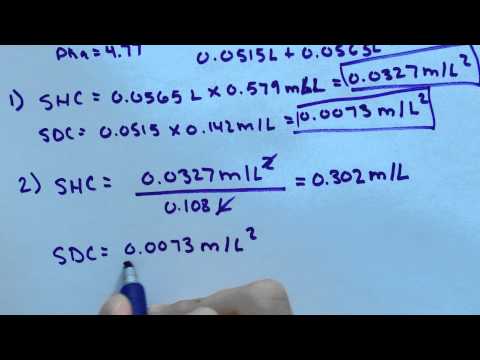 pKa = 4.77
0.0515L + 0.0565L
1) SHC = 0.0565 L x 0.579 m/L = 0.0327 m/L²
SDC = 0.0515 x 0.142 m/L = 0.0073 m/L²
2) SHC = 0.0327 m/L² / 0.108 L = 0.302 m/L
SDC = 0.0073 m/L²